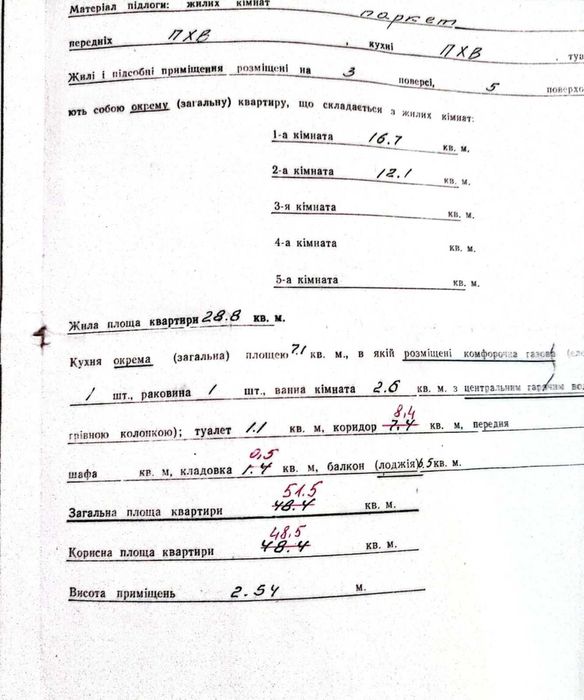 Матеріал підлоги: жилих кімнат паркет
передніх ПХВ , кухні ПХВ , туа
Жилі і підсобні приміщення розміщені на 3 поверсі, 5 поверхо
ють собою окрему (загальну) квартиру, що складається з жилих кімнат:
1-а кімната 16.7 кв. м.
2-а кімната 12.1 кв. м.
3-я кімната кв. м.
4-а кімната кв. м.
5-а кімната кв. м.
Жила площа квартири 28.8 кв. м.
Кухня окрема (загальна) площею 7.1 кв. м., в якій розміщені комфорочна газова (еле
1 шт., раковина 1 шт., ванна кімната 2.6 кв. м. з центральним гарячим во
8,4
грівною колонкою); туалет 1.1 кв. м, коридор 7.4 кв. м, передня
0,5
шафа кв. м, кладовка 1.4 кв. м, балкон (лоджія) 6.5 кв. м.
51.5
Загальна площа квартири 48.4 кв. м.
48,5
Корисна площа квартири 48.4 кв. м.
Висота приміщень 2.54 м.